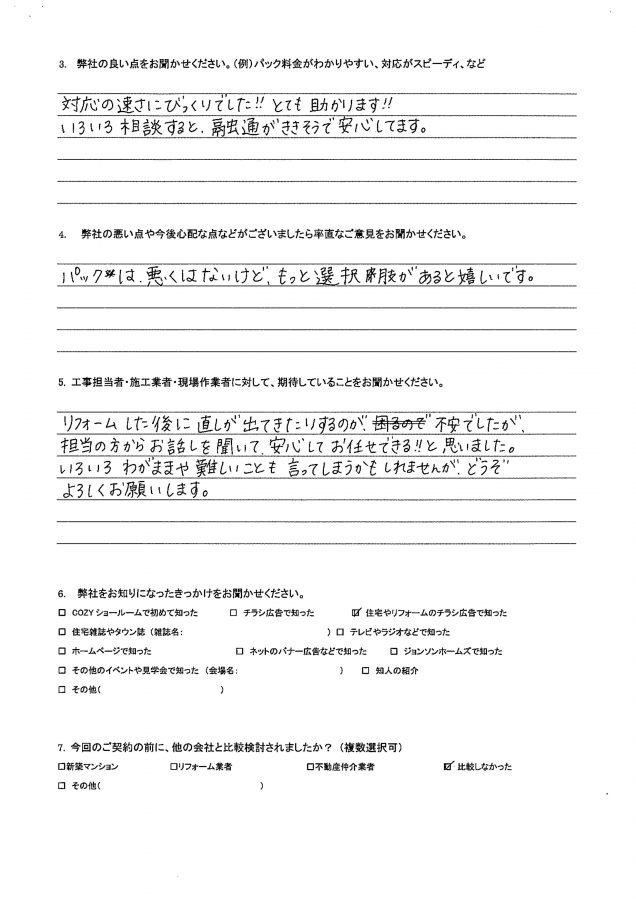 3. 弊社の良い点をお聞かせください。（例）パック料金がわかりやすい、対応がスピーディ、など
対応の速さにびっくりでした!! とても助かります!!
いろいろ相談すると、融通がききそうで安心してます。
4. 弊社の悪い点や今後心配な点などがございましたら率直なご意見をお聞かせください。
パックは、悪くはないけど、もっと選択肢があると嬉しいです。
5. 工事担当者・施工業者・現場作業者に対して、期待していることをお聞かせください。
リフォームした後に直しが出てきたりするのが、困るので不安でしたが、
担当の方からお話しを聞いて、安心してお任せできる!!と思いました。
いろいろわがままや難しいことも言ってしまうかもしれませんが、どうぞ
よろしくお願いします。
6. 弊社をお知りになったきっかけをお聞かせください。
□ COZYショールームで初めて知った □ チラシ広告で知った ☑ 住宅やリフォームのチラシ広告で知った
□ 住宅雑誌やタウン誌（雑誌名: ）□ テレビやラジオなどで知った
□ ホームページで知った □ ネットのバナー広告などで知った □ ジョンソンホームズで知った
□ その他のイベントや見学会で知った（会場名: ） □ 知人の紹介
□ その他( )
7. 今回のご契約の前に、他の会社と比較検討されましたか？（複数選択可）
□新築マンション □リフォーム業者 □不動産仲介業者 ☑ 比較しなかった
□ その他( )